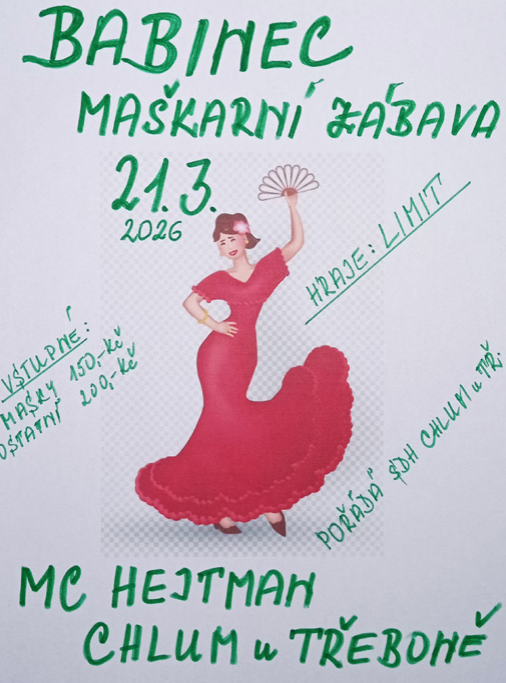 BABINEC
MAŠKARNÍ ZÁBAVA
21.3.
2026
HRAJE: LIMIT
VSTUPNÉ:
MASKY 150,-Kč
OSTATNÍ 200,-Kč
POŘÁDÁ SDH CHLUM u TŘ.
MC HEJTMAN
CHLUM u TŘEBONĚ